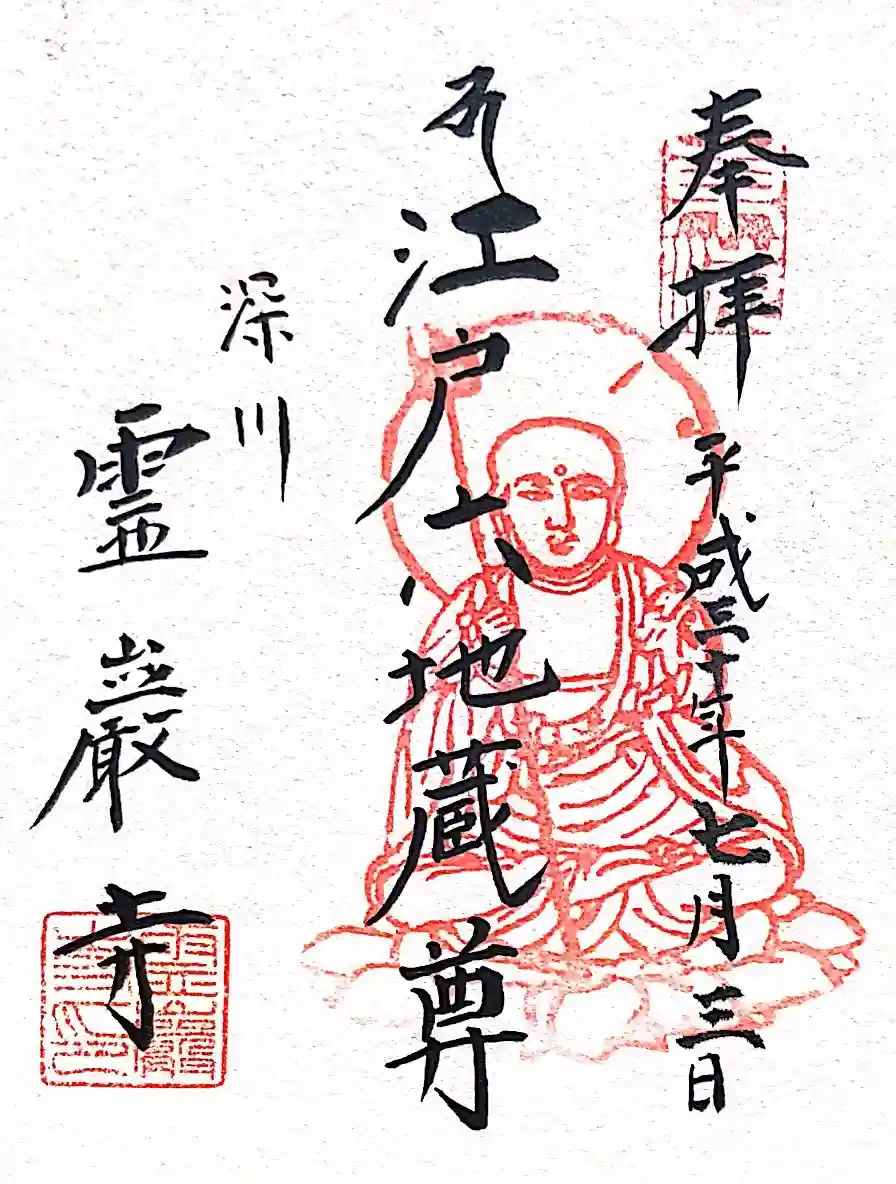 奉拝
平成三十年七月三日
江戸六地蔵尊
深川
霊巌寺